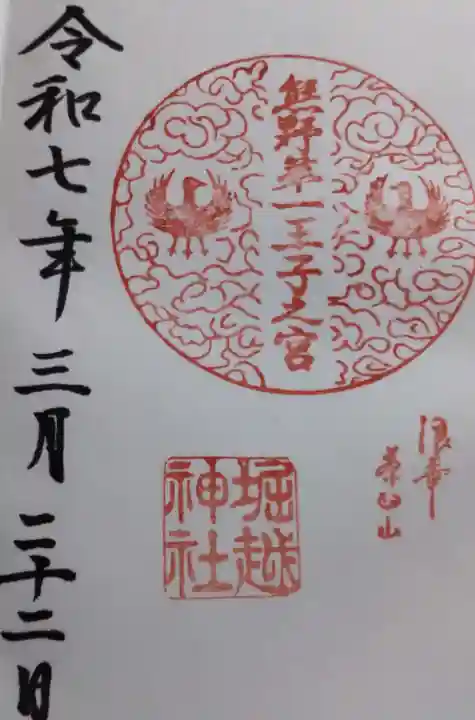 浪華
茶臼山
熊野第一王子之宮
堀越
神社
令和七年三月二十二日